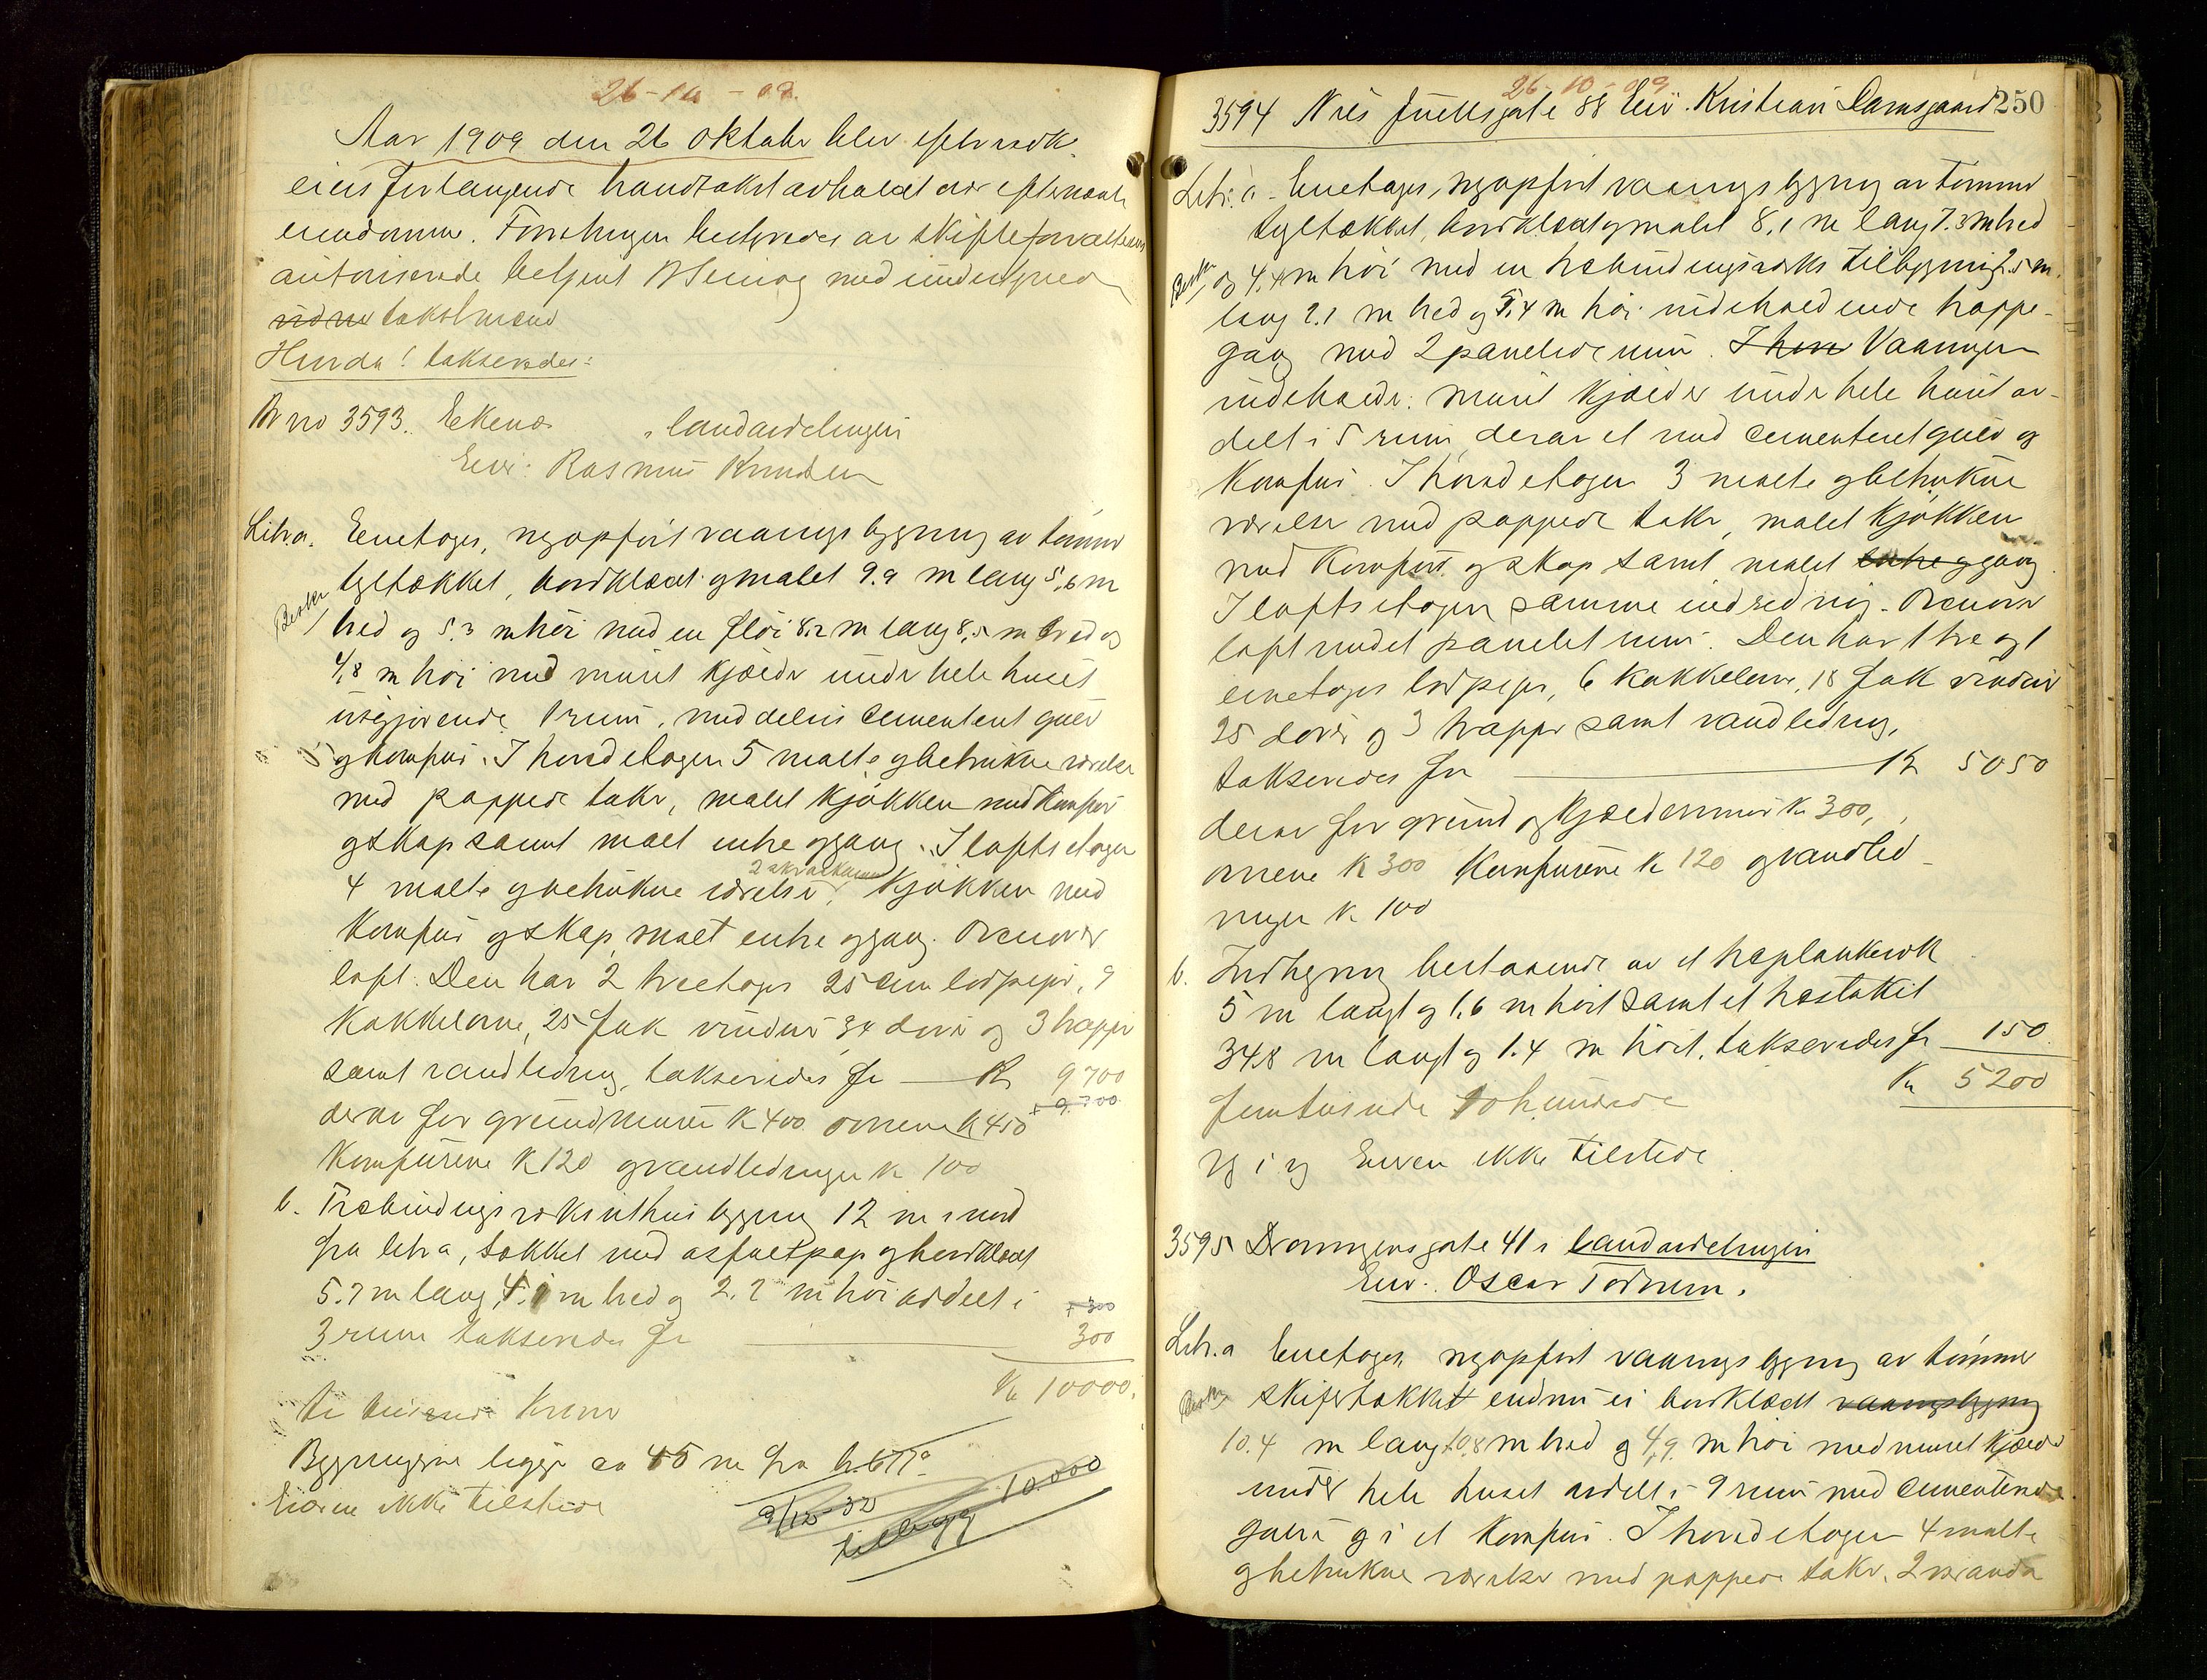 26-10-09.
Aar 1909 den 26 Oktober blev efter vedk.
eiers forlangende brandtakst avholdt over efternævnte
eiendomme. Forretningen bestyredes av skifteforvalterens
autoriserede betjent med undertegnede
takstmænd
Herda! takseredes:
Br no 3593. Ekenæs i landavdelingen
Eier: Rasmus Knudsen
Litr. a. Eenetages, nyopført vaaningsbygning av tømmer
tegltækket, bordklædt og malet 9.9 m lang 5,6 m
bred og 5.3 m høi med en fløi 8,2 m lang 8,5 m bred og
4,8 m høi med muret kjælder under hele huset
utgjørende 1 rum, med delvis cementeret gulv
og komfur. I hovedetagen 5 malte og betrukne værelser
med pappede take, malet kjøkken med komfur
og skap samt malt entre og gang. I loftsetagen
4 malte og betrukne værelser, 2 skraakammer kjøkken med
komfur og skap, malt entre og gang. Ovenover
loft. Den har 2 treetages 25 cm lodpiper, 9
kakkelovne, 25 fak vinduer 34 døre og 3 trapper
samt vandledning, takseredes for — Kr 9700
derav for grundmuren K 400 ovnene K 450
Komfurene K 120 og vandledningen K 100
b. Træbindingsverks uthusbygning 12 m nord
fra litr a, tækket med asfaltpap og bordklædt
5.7 m lang, 4.1 m bred og 2.2 m høi avdelt i
3 rum takseredes for 300
Kr 10000.
Ti tusende Kroner
Bygningerne ligger ca 45 m fra br. 677a
Eieren ikke tilstede
9/12-32
tillegg 10.000
26-10-09
250
3594 Niels Juellsgate 88 Eier: Kristian Damsgaard
Litr. a. Eenetages, nyopført vaaningsbygning av tømmer
tegltækket, bordklædt og malet 8,1 m lang 7.3 m bred
og 4,4 m høi med en træbindingsverks tilbygning 2.5 m.
lang 2.1 m bred og 5.4 m høi indeholdende trappe-
gang med 2 panelede rum. I hove Vaaningen
indeholder: muret kjælder under hele huset av-
delt i 5 rum, derav et med cementeret gulv og
komfur. I hovedetagen 3 malte og betrukne
værelser med pappede take, malet kjøkken
med komfur og skap samt malet entre og gang
I loftsetagen samme indredning. Ovenover
loft med et panelet rum. Den har 1 tre og 1
eenetages lodpiper, 6 kakkelovne, 18 fak vinduer
25 døre og 3 trapper samt vandledning,
takseredes for — Kr 5050
derav for grund og kjældermur Kr 300,
ovnene K 300 Komfurene K 120 og vandled-
ningen K 100
b. Indhegning bestaaende av et træplankeverk
5 m langt og 1,6 m høit samt et træstakit
34,8 m langt og 1.4 m høit, takseredes for 150
Kr 5200
femtusinde tohundrede
Eieren ikke tilstede
3595 Dronningensgate 41 i landavdelingen
Eier. Oscar Tornem.
Litr. a Eenetages, nyopført vaaningsbygning av tømmer
skifertækket endnu ei bordklædt vaaningsbygning
10.4 m lang 10,8 m bred og 4,9 m høi med muret kjælder
under hele huset avdelt i 9 rum med cementerede
gulve og i et komfur. I hovedetagen 4 malte
og betrukne værelser med pappede take, 2 veranda